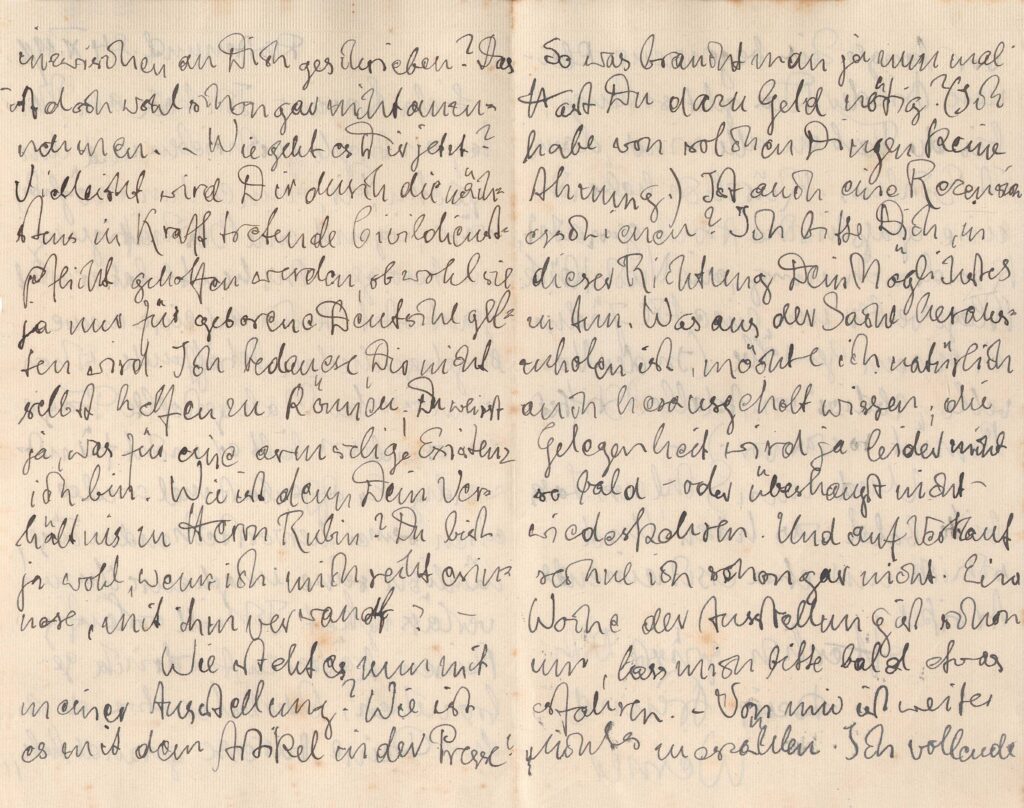 inzwischen an Dich geschrieben? Das
ist doch wohl schon gar nicht anzu-
nehmen. – Wie geht es Dir jetzt?
Vielleicht wird Dir durch die näch-
stens in Kraft tretende Civildienst-
pflicht geholfen werden, obwohl sie
ja nur für geborene Deutsche gel-
ten wird. Ich bedaure, Dir nicht
selbst helfen zu können, Du weisst
ja, was für eine armselige Existenz
ich bin. Wie ist denn Dein Ver-
hältnis zu Herrn Rubin? Du bist
ja wohl, wenn ich mich recht erin-
nere, mit ihm verwandt?
Wie steht es nun mit
meiner Ausstellung? Wie ist
es mit dem Artikel in der Presse?
So was braucht man ja nun mal
Hast Du dazu Geld nötig? (Ich
habe von solchen Dingen keine
Ahnung.) Ist auch eine Rezension
erschienen? Ich bitte Dich, in
dieser Richtung Dein Möglichstes
zu tun. Was aus der Sache heraus-
zuholen ist, möchte ich natürlich
auch herausgeholt wissen, die
Gelegenheit wird ja leider nicht
so bald – oder überhaupt nicht –
wiederkehren. Und auf Verkauf
rechne ich schon gar nicht. Eine
Woche der Ausstellung ist schon
um, lass mich bitte bald etwas
erfahren. – Von mir ist weiter
nichts zu erzählen. Ich vollende